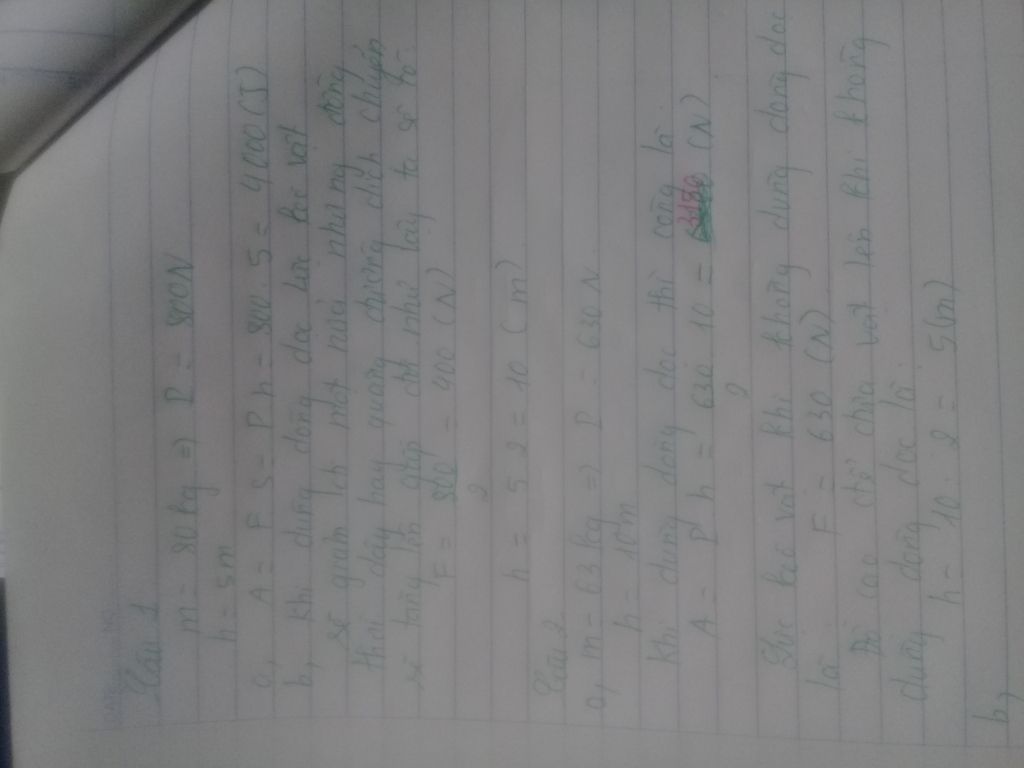 Câu 1
m = 80kg => P = 800N
h = 5m
a, A = F.S = P.h = 800.5 = 4000(J)
b, khi dùng ròng dọc lúc kéo vật
sẽ giảm lợi một nửa nhưng đồng
thời dây hay quãng đường dịch chuyển
sẽ tăng gấp đôi như vậy ta sẽ có:
F = 800/2 = 400 (N)
h = 5.2 = 10 (m)
Câu 2
a, m = 63kg => P = 630N
h = 10m
khi dùng ròng dọc thì công là
A = P.h = 630/2.10 = (N)
Lực kéo vật khi không dùng ròng dọc
là F = 630 (N)
Độ cao để đưa vật lên khi không
dùng ròng dọc là
h = 10:2 = 5(m)
b,